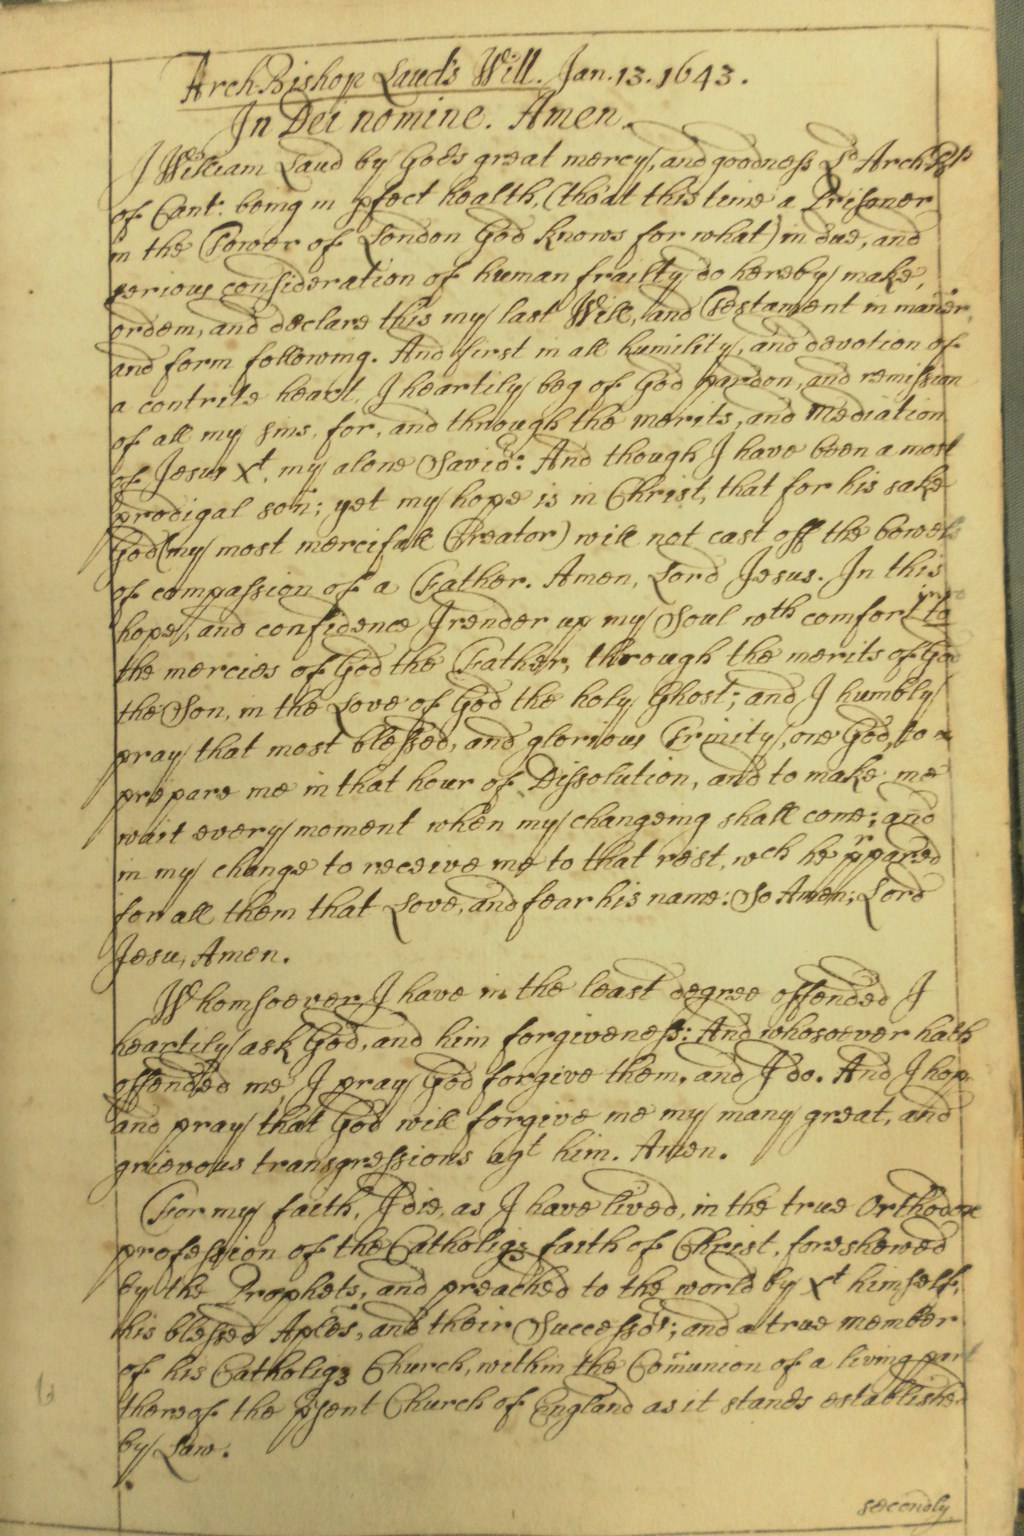 ArchBishop Laud's Will. Jan. 13. 1643.
In Dei nomine. Amen.
I William Laud by Gods great mercy, and goodness Ld ArchBp
of Cant: being in pfect health, (tho at this time a Prisoner
in the Tower of London God knows for what) in due, and
serious consideration of human frailty do hereby make,
ordein, and declare this my last Will, and Testament in maner,
and form following. And first in all humility, and devotion of
a contrite heart, I heartily beg of God pardon, and remission
of all my sins, for, and through the merits, and mediation
of Jesus Xt. my alone Savior: And though I have been a most
prodigal son; yet my hope is in Christ, that for his sake
God (my most mercifull Creator) will not cast off the bowels
of compassion of a Father. Amen, Lord Jesus. In this
hope, and confidence I render up my Soul wth comfort into
the mercies of God the Father, through the merits of God
the Son, in the Love of God the holy Ghost; and I humbly
pray that most blessed, and glorious Trinity, one God, to
prepare me in that hour of Dissolution, and to make me
wait every moment when my changeing shall come; and
in my change to receive me to that rest, wch he prpared
for all them that Love, and fear his name: So Amen; Lord
Jesu, Amen.
Whomsoever I have in the least degree offended I
heartily ask God, and him forgiveness: And whosoever hath
offended me, I pray God forgive them, and I do. And I hope
and pray that God will forgive me my many great, and
grievous transgressions agt him. Amen.
For my faith, I die, as I have lived, in the true Orthodox
profession of the Catholiq3 faith of Christ, foreshewed
by the Prophets, and preached to the world by Xt himself,
his blessed Aples, and their Successors; and a true member
of his Catholiq3 Church, within the Comunion of a living part
thereof the psent Church of England as it stands established
by Law.
secondly